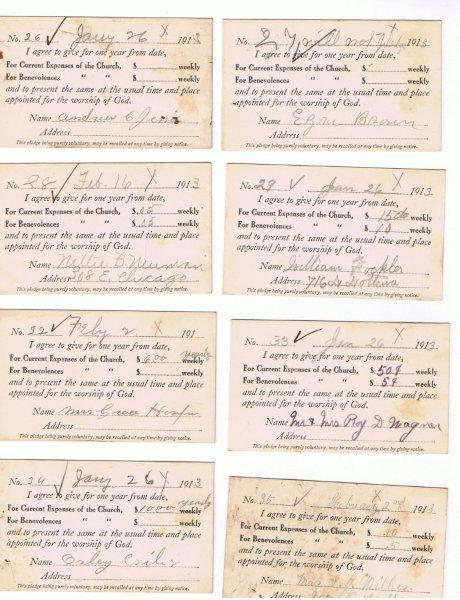 No. 26 ✓ Jany 26 X 1913
I agree to give for one year from date,
For Current Expenses of the Church, $ weekly
For Benevolences " " $ weekly
and to present the same at the usual time and place
appointed for the worship of God.
Name Andrew C
Address
This pledge being purely voluntary, may be recalled at any time by giving notice.
No. 27 will not X 1913
I agree to give for one year from date,
For Current Expenses of the Church, $ weekly
For Benevolences " " $ weekly
and to present the same at the usual time and place
appointed for the worship of God.
Name Brown
Address
This pledge being purely voluntary, may be recalled at any time by giving notice.
No. 28 ✓ Feb. 16 X 1913
I agree to give for one year from date,
For Current Expenses of the Church, $ weekly
For Benevolences " " $ weekly
and to present the same at the usual time and place
appointed for the worship of God.
Name Nellie B. Neuman
Address E. Chicago
This pledge being purely voluntary, may be recalled at any time by giving notice.
No. 29 ✓ Jan 26 X 1913
I agree to give for one year from date,
For Current Expenses of the Church, $ 15 weekly
For Benevolences " " $ 10 weekly
and to present the same at the usual time and place
appointed for the worship of God.
Name William Fockler
Address Ottawa
This pledge being purely voluntary, may be recalled at any time by giving notice.
No. 32 ✓ Feby 2 X 191
I agree to give for one year from date,
yearly
For Current Expenses of the Church, $ 6.00 weekly
For Benevolences " " $ weekly
and to present the same at the usual time and place
appointed for the worship of God.
Name Mrs Grace
Address
This pledge being purely voluntary, may be recalled at any time by giving notice.
No. 33 ✓ Jan 26 X 1913
I agree to give for one year from date,
For Current Expenses of the Church, $ 50¢ weekly
For Benevolences " " $ 5¢ weekly
and to present the same at the usual time and place
appointed for the worship of God.
Name Mr & Mrs Roy D. Wagner
Address
This pledge being purely voluntary, may be recalled at any time by giving notice.
No. 34 ✓ Jany 26 X 1913
I agree to give for one year from date,
yearly
For Current Expenses of the Church, $ 10.00 weekly
For Benevolences " " $ weekly
and to present the same at the usual time and place
appointed for the worship of God.
Name
Address
This pledge being purely voluntary, may be recalled at any time by giving notice.
No. 35 ✓ February 2nd X 1913
I agree to give for one year from date,
For Current Expenses of the Church, $ weekly
For Benevolences " " $ weekly
and to present the same at the usual time and place
appointed for the worship of God.
Name Mrs
Address